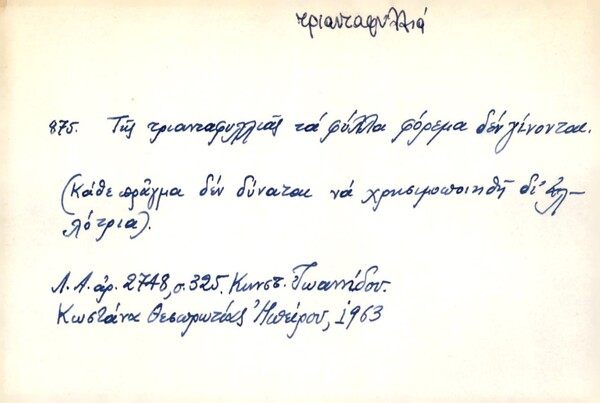 τριανταφυλλιά
875. Τῆς τριανταφυλλιᾶς τά φύλλα φόρεμα δέν γίνονται.
(Κάθε πρᾶγμα δέν δύναται νά χρησιμοποιηθῇ δι' ἀλ-
λότρια).
Λ.Α. ἀρ. 2748, σ. 325. Κωνστ. Ἰωαννίδου.
Κωστάνα Θεσπρωτίας Ἠπείρου, 1963